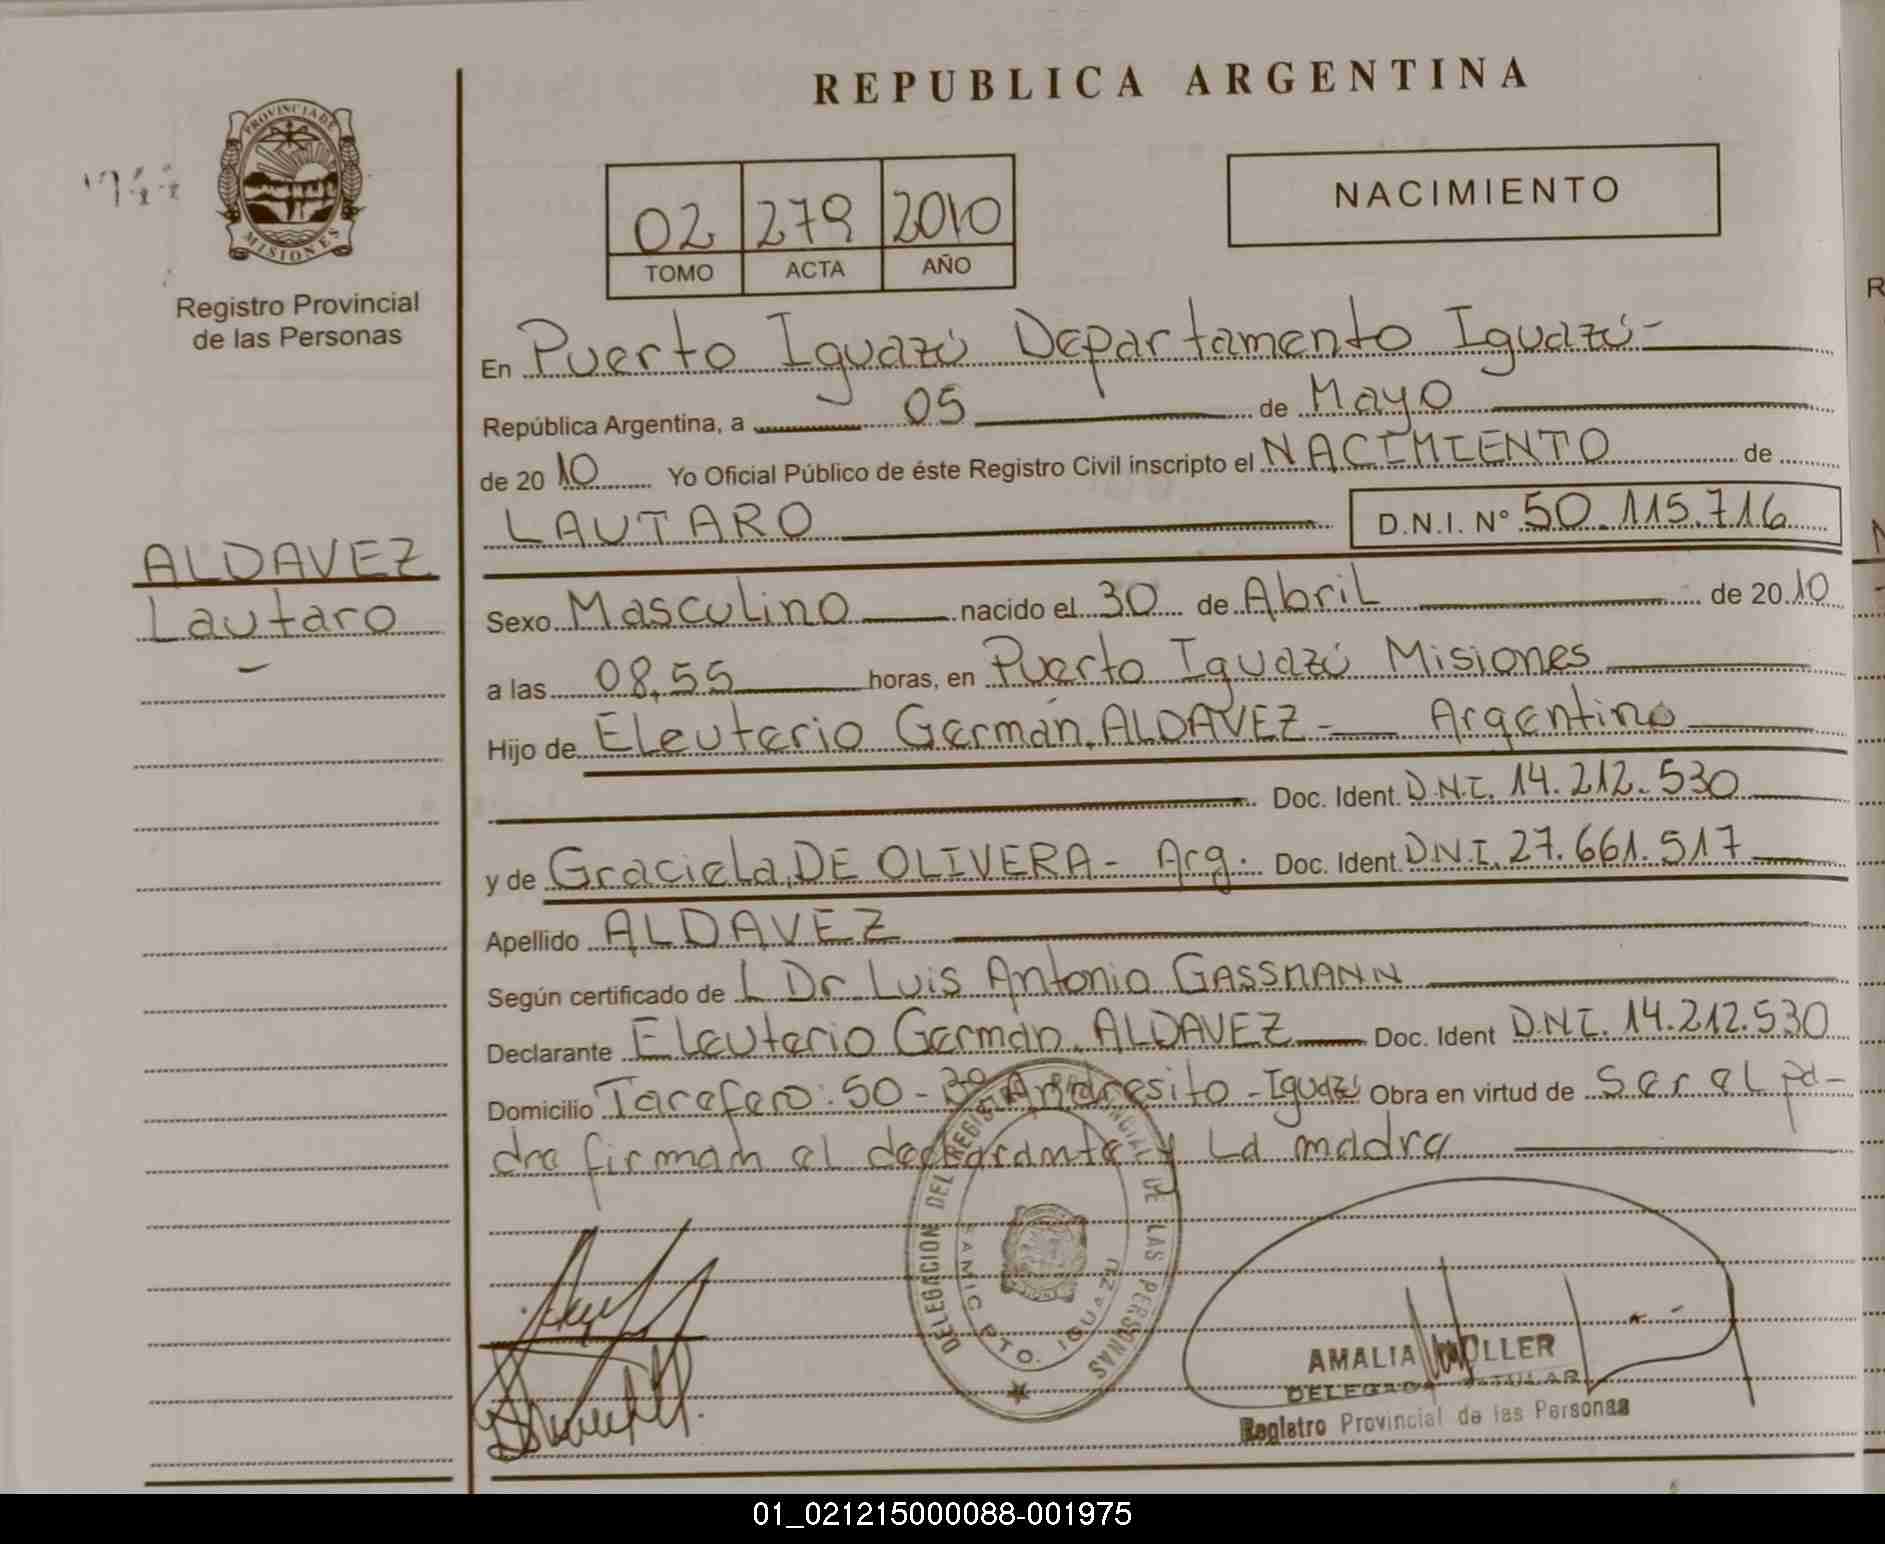 REPUBLICA ARGENTINA
PROVINCIA DE
MISIONES
Registro Provincial
de las Personas
02 279 2010
TOMO ACTA AÑO
NACIMIENTO
En Puerto Iguazú Departamento Iguazú-
República Argentina, a 05 de Mayo
de 2010 Yo Oficial Público de éste Registro Civil inscripto el NACIMIENTO de
LAUTARO D.N.I. Nº 50.115.716
ALDAVEZ
Lautaro
Sexo Masculino nacido el 30 de Abril de 2010
a las 08,55 horas, en Puerto Iguazú Misiones
Hijo de Eleuterio Germán, ALDAVEZ - Argentino
Doc. Ident. D.N.I. 14.212.530
y de Graciela, DE OLIVERA - Arg. Doc. Ident. D.N.I. 27.661.517
Apellido ALDAVEZ
Según certificado de L Dr Luis Antonio GASSMANN
Declarante Eleuterio Germán, ALDAVEZ Doc. Ident D.N.I. 14.212.530
Domicilio Tarefero: 50 - Bº Andresito - Iguazú Obra en virtud de ser el pa-
dre firman el declarante y La madre
DELEGACION DEL REGISTRO PROVINCIAL DE LAS PERSONAS
SAMIC PTO. IGUAZU
AMALIA MOLLER
DELEGADA TITULAR
Registro Provincial de las Personas
01_021215000088-001975